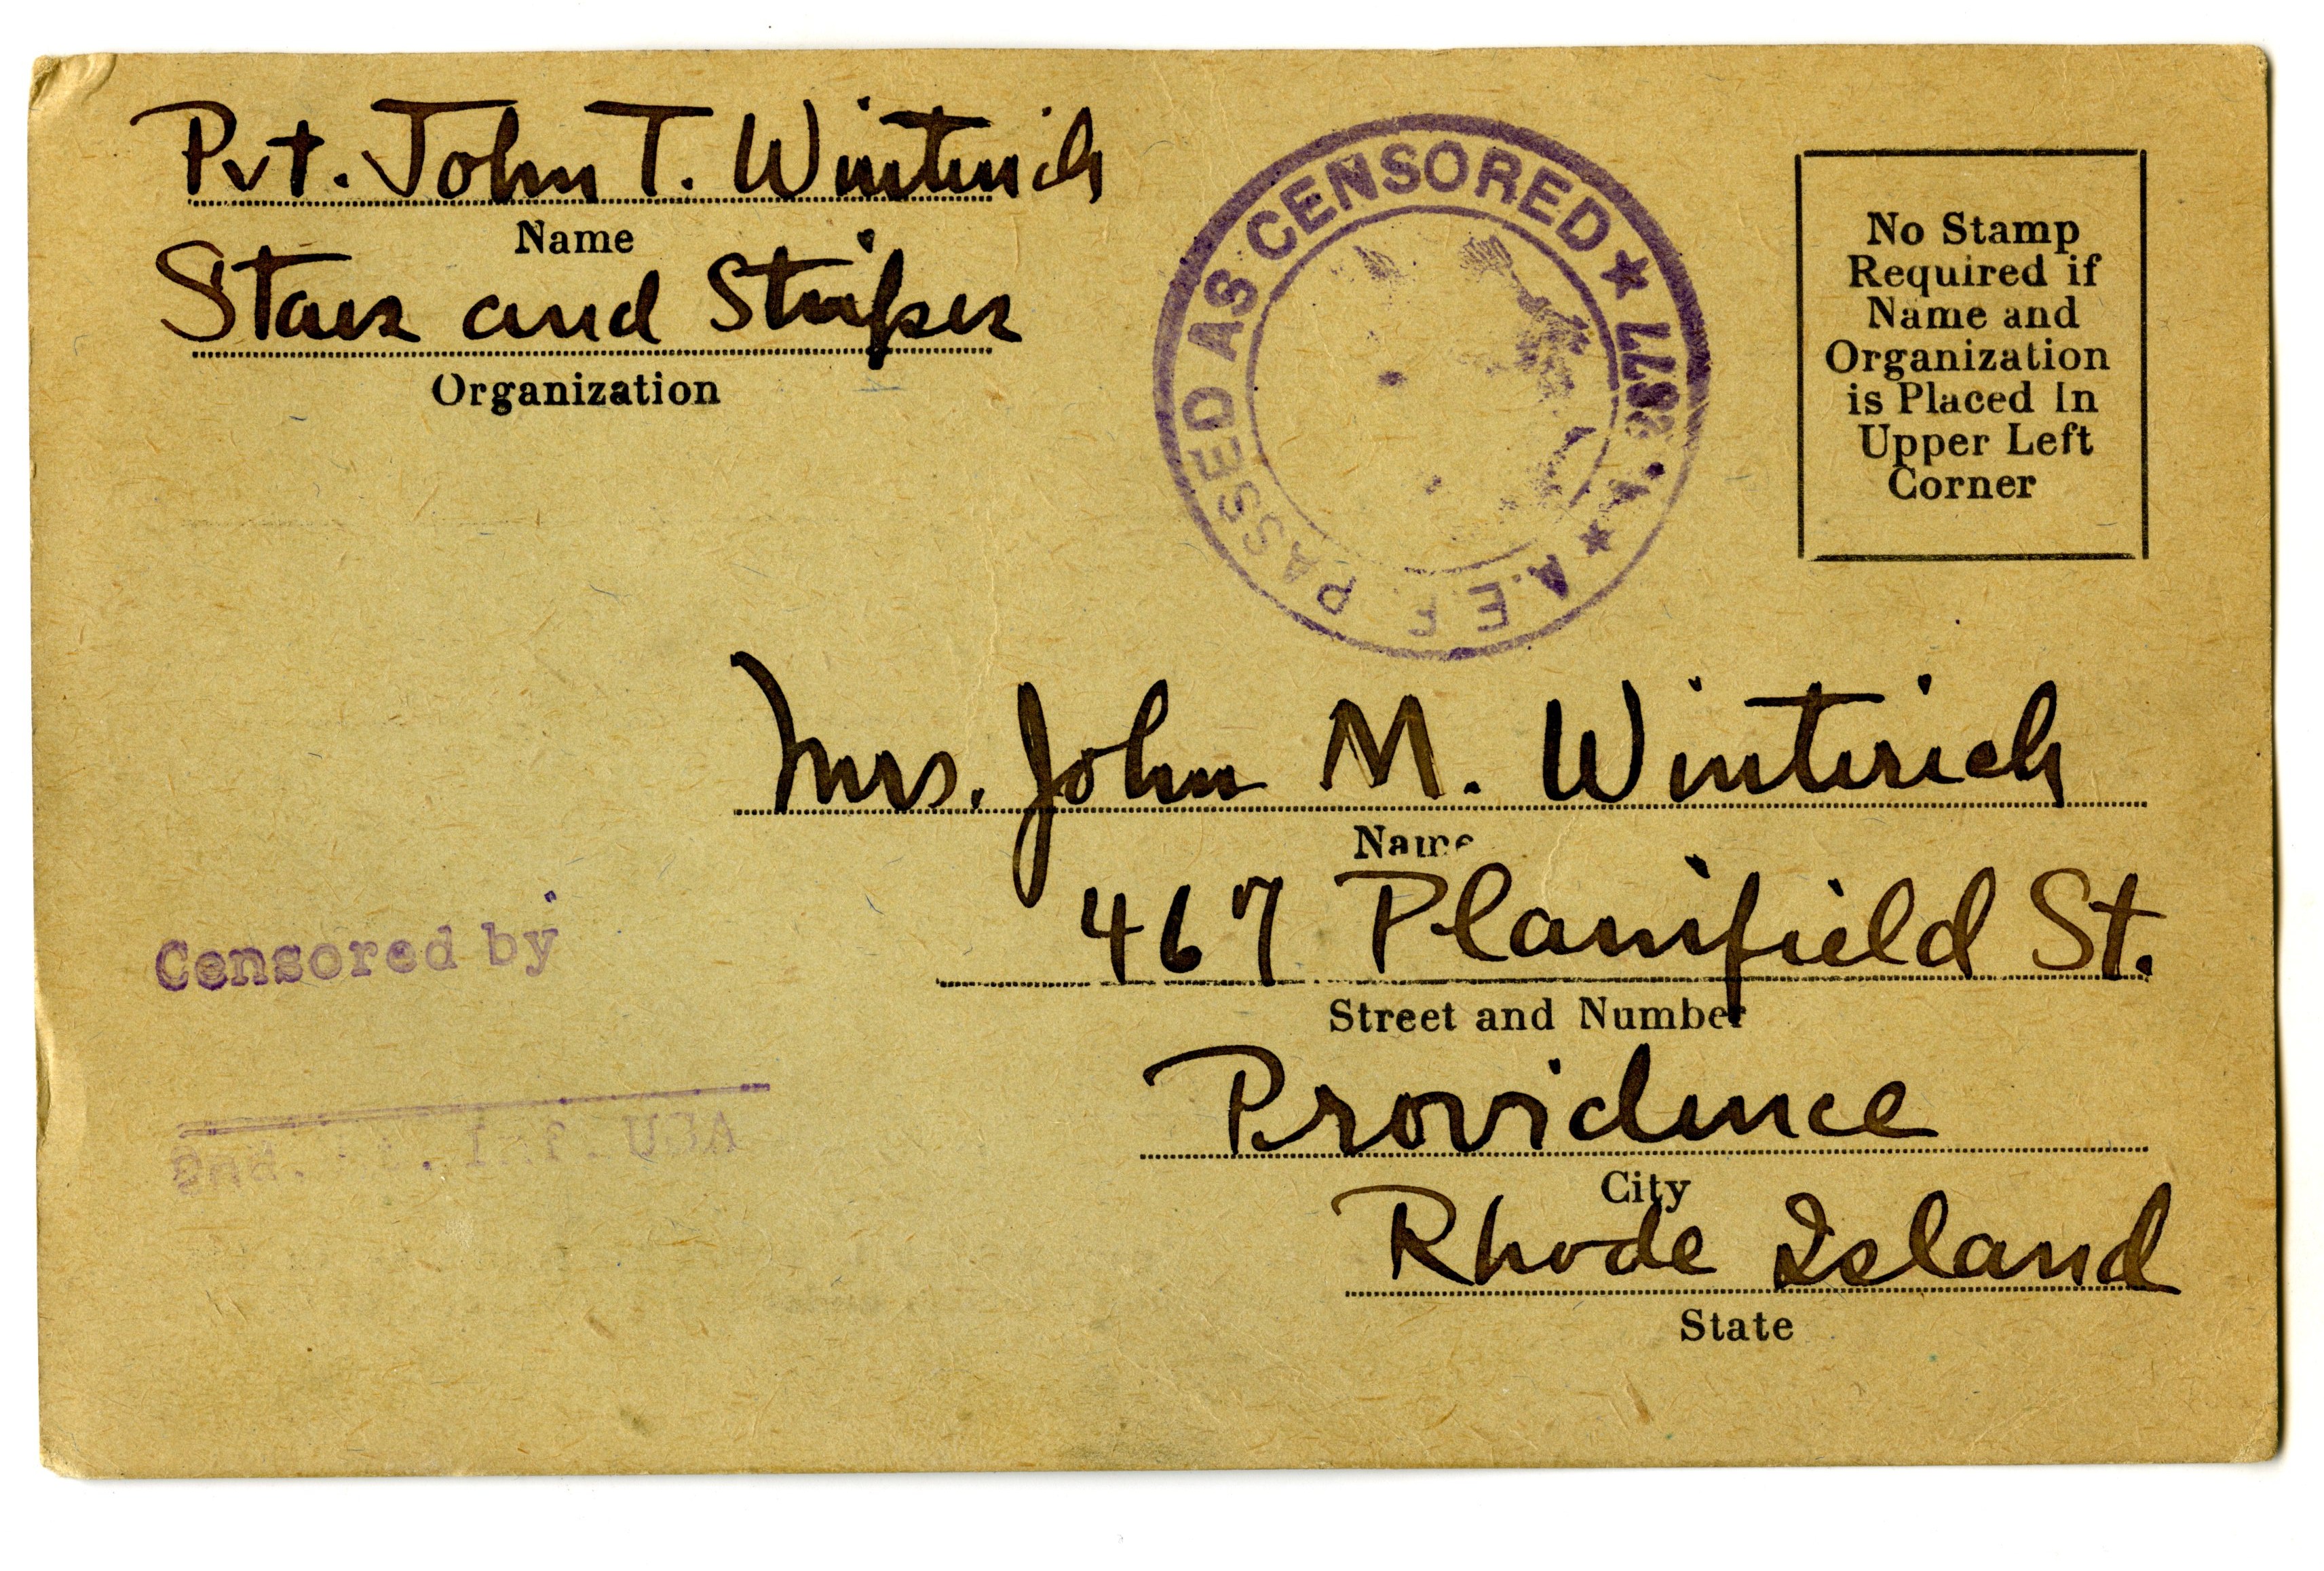 Pvt. John T. Winterich
Name
Stars and Stripes
Organization
A.E.F. PASSED AS CENSORED ★
★
No Stamp
Required if
Name and
Organization
is Placed In
Upper Left
Corner
Mrs. John M. Winterich
Name
467 Plainfield St.
Street and Number
Providence
City
Rhode Island
State
Censored by
2nd. Inf. USA